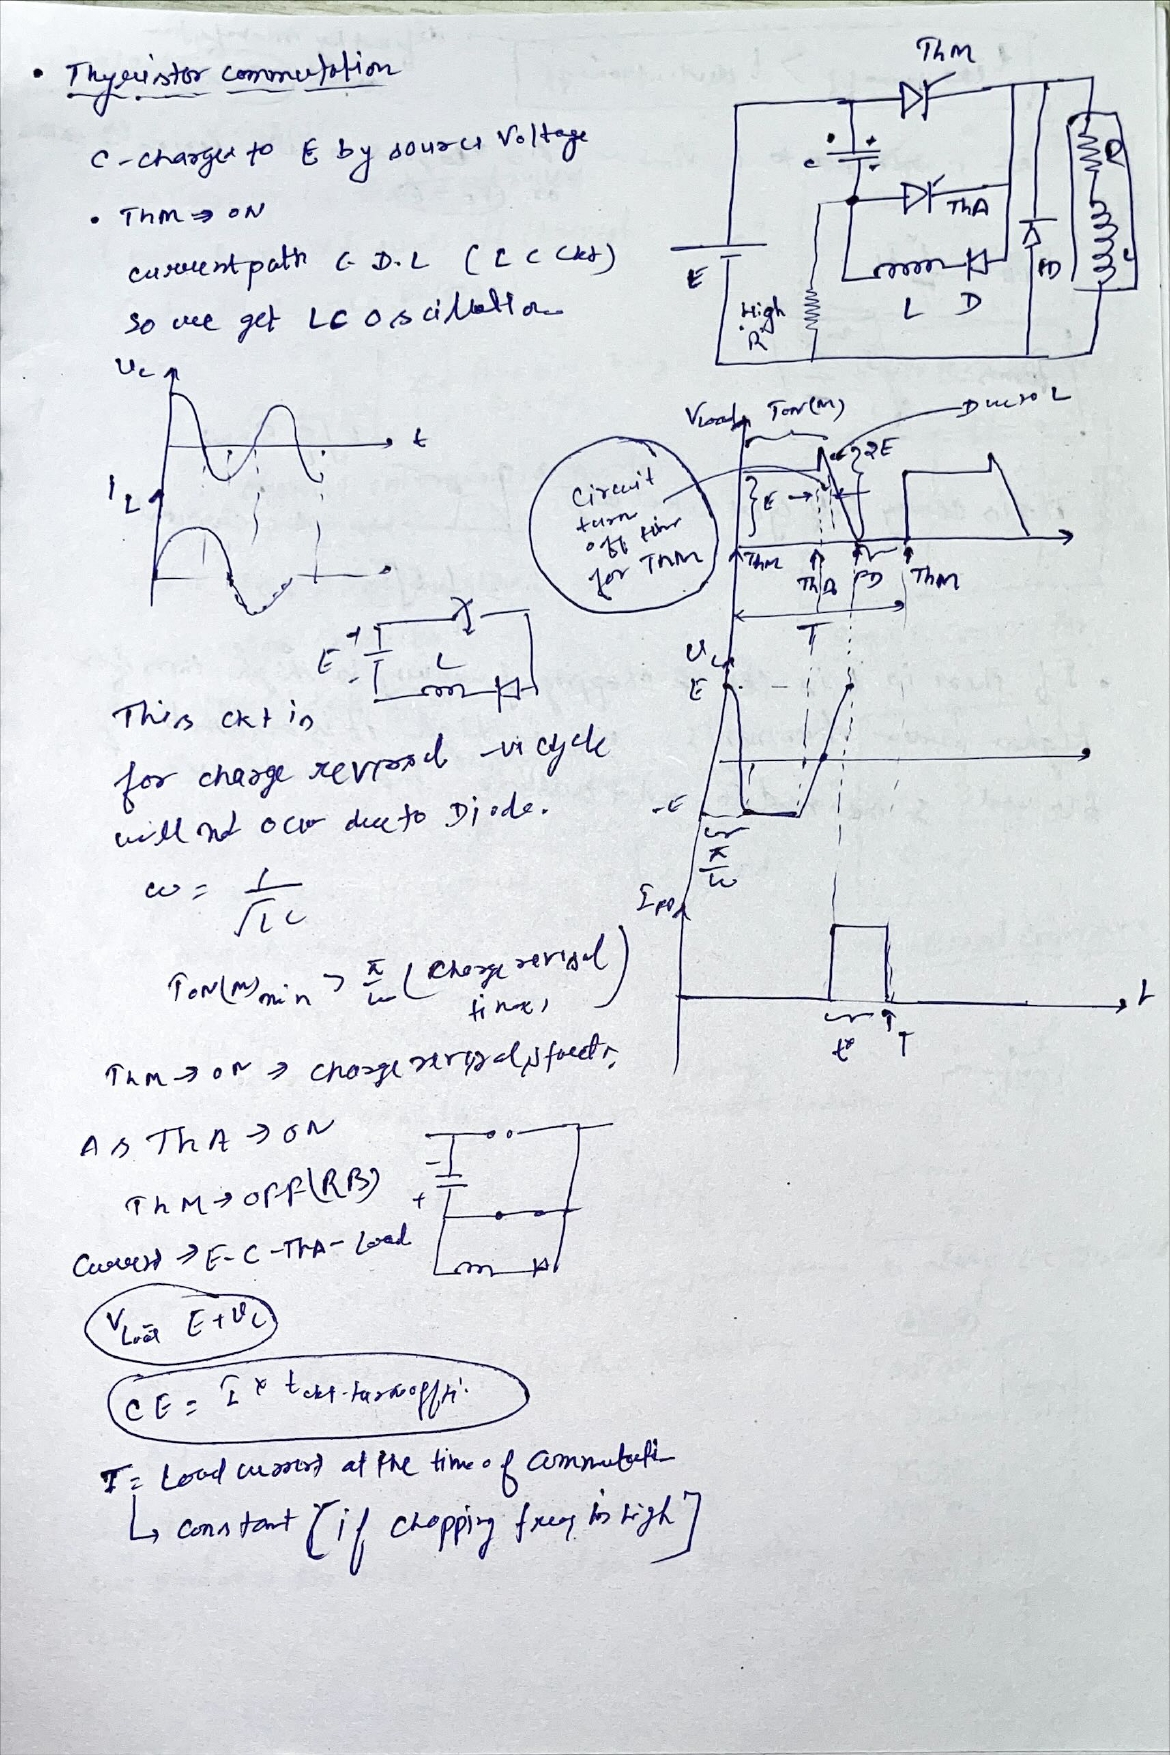 • Thyristor commutation
C-charges to E by source Voltage
• ThM → ON
current path C-D-L (LC Ckt)
so we get LC Oscillation
ThM
C
+ +
- -
ThA
R
L
E
High R
L D
FD
Vc
t
IL
E + -
L
This ckt is
for charge reversal -ve cycle
will not occur due to Diode.
ω = 1/√LC
TON(M)min > π/ω (charge reversal time)
ThM → ON → charge reversal
As ThA → ON
ThM → OFF (RB)
Current → E-C-ThA-Load
- +
VLoad = E + Vc
CE = I × tckt-turnoff
I = Load current at the time of commutation
↳ constant [if chopping freq is high]
VLoad TON(M)
Due to L
2E
E
Circuit turn off time for ThM
ThM ThA FD ThM
T
Vc
E
-E
π/ω
IFD
t
t* T